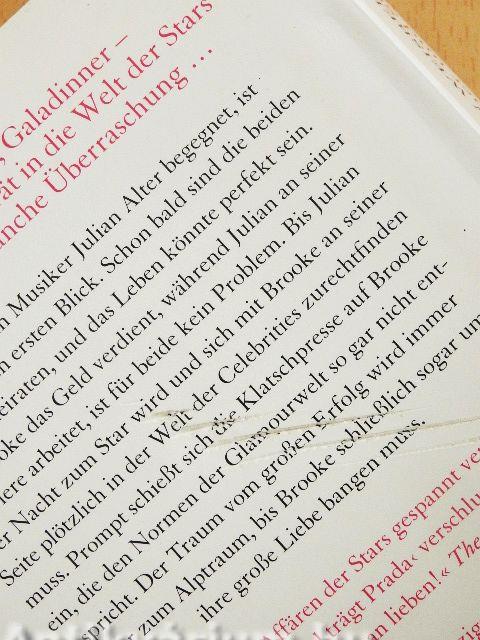 Galadinner –
in die Welt der Stars
Überraschung ...
Musiker Julian Alter begegnet, ist
ersten Blick. Schon bald sind die beiden
und das Leben könnte perfekt sein.
das Geld verdient, während Julian an seiner
arbeitet, ist für beide kein Problem. Bis Julian
Nacht zum Star wird und sich mit Brooke an seiner
Seite plötzlich in der Welt der Celebrities zurechtfinden
muss. Prompt schießt sich die Klatschpresse auf Brooke
ein, die den Normen der Glamourwelt so gar nicht ent-
spricht. Der Traum vom großen Erfolg wird immer
zum Alptraum, bis Brooke schließlich sogar um
ihre große Liebe bangen muss.
der Stars gespannt
trägt Prada‹
lieben!« The